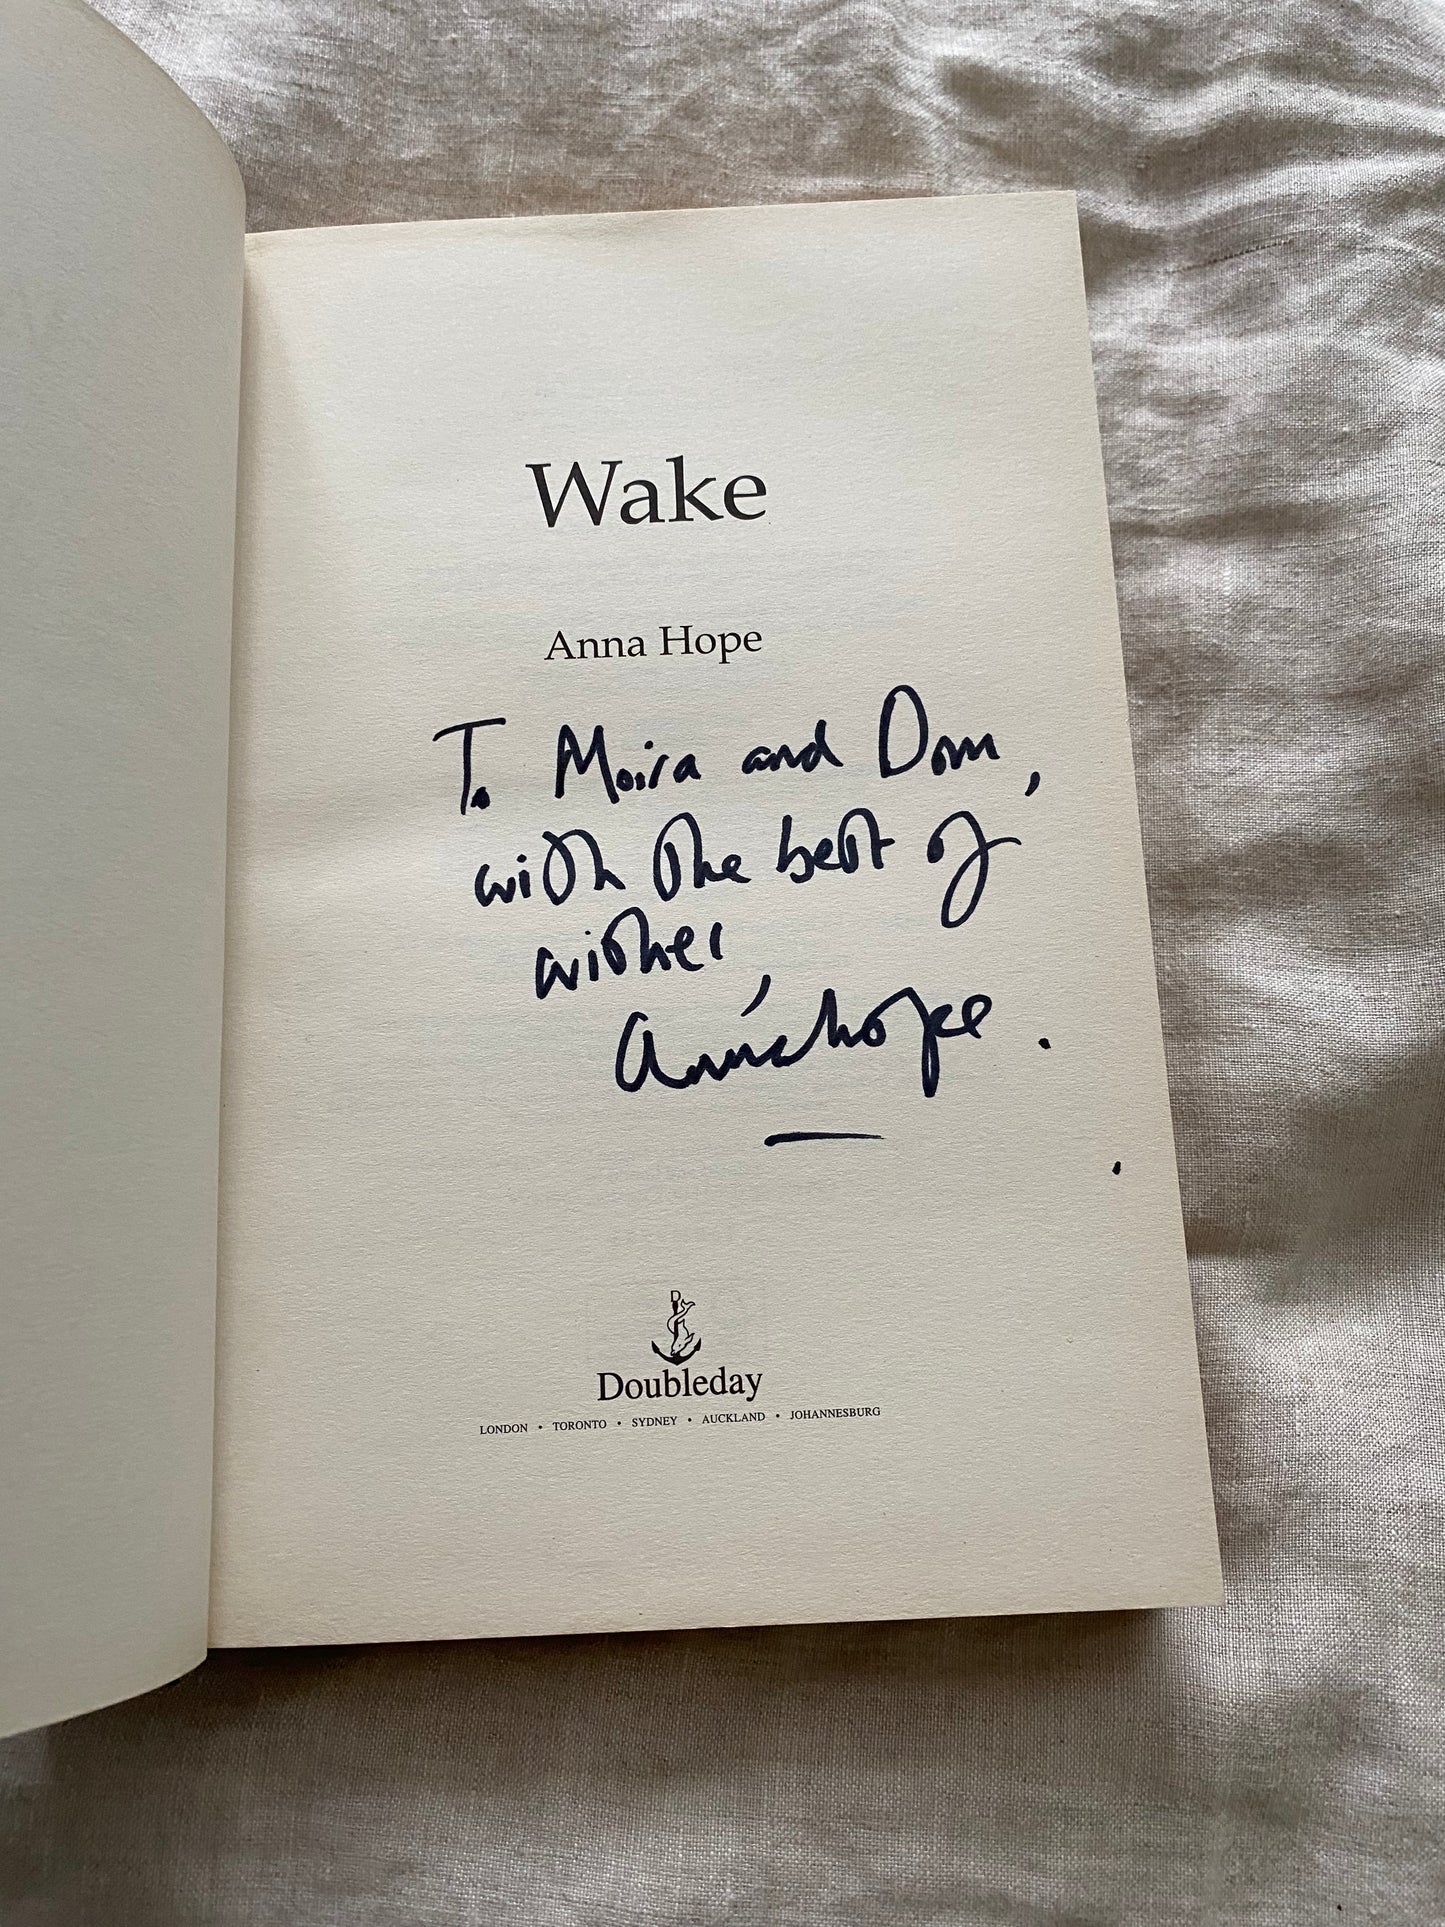 Wake
Anna Hope
To Moira and Dom,
with the best of
wishes,
Anna Hope.
D
Doubleday
LONDON • TORONTO • SYDNEY • AUCKLAND • JOHANNESBURG